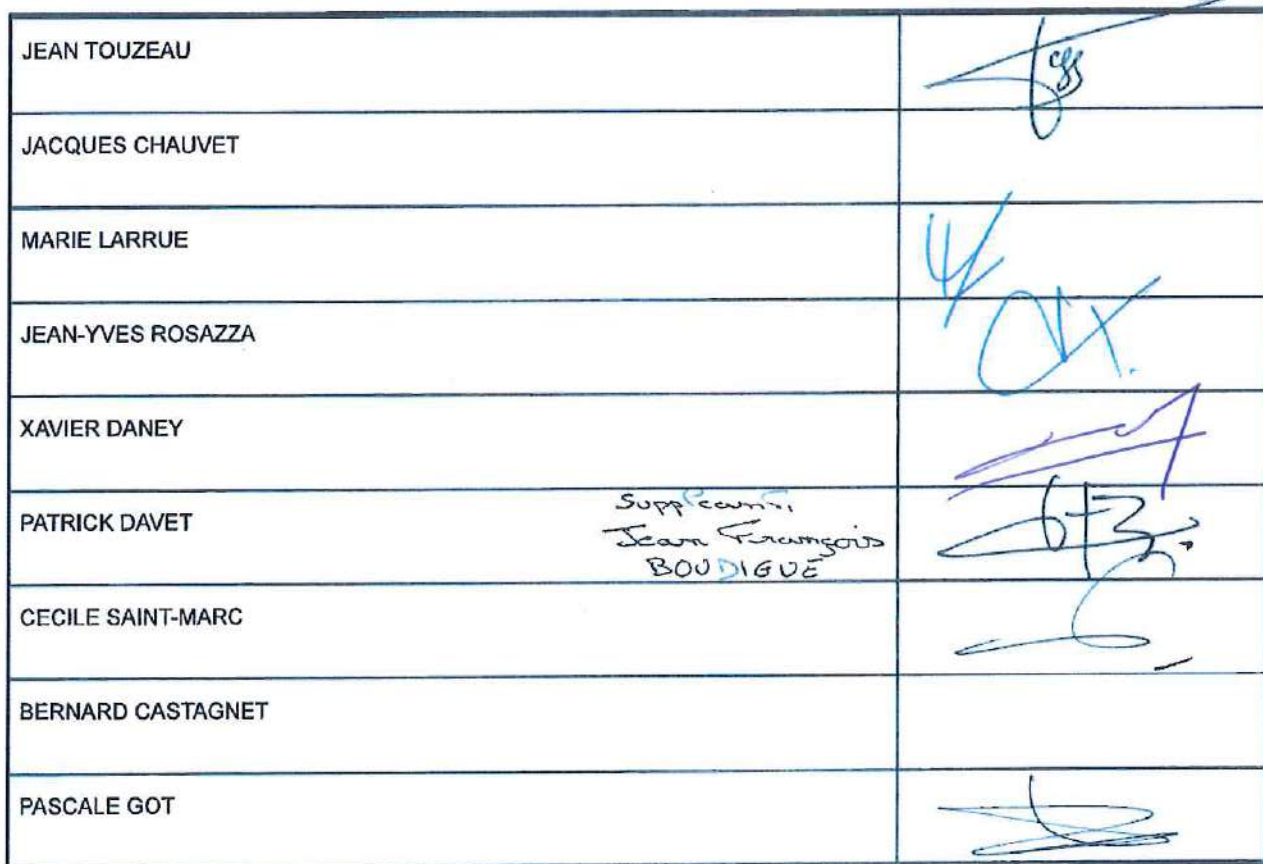 JEAN TOUZEAU
JACQUES CHAUVET
MARIE LARRUE
JEAN-YVES ROSAZZA
XAVIER DANEY
PATRICK DAVET
Suppléant,
Jean François
BOUDIGUE
CECILE SAINT-MARC
BERNARD CASTAGNET
PASCALE GOT